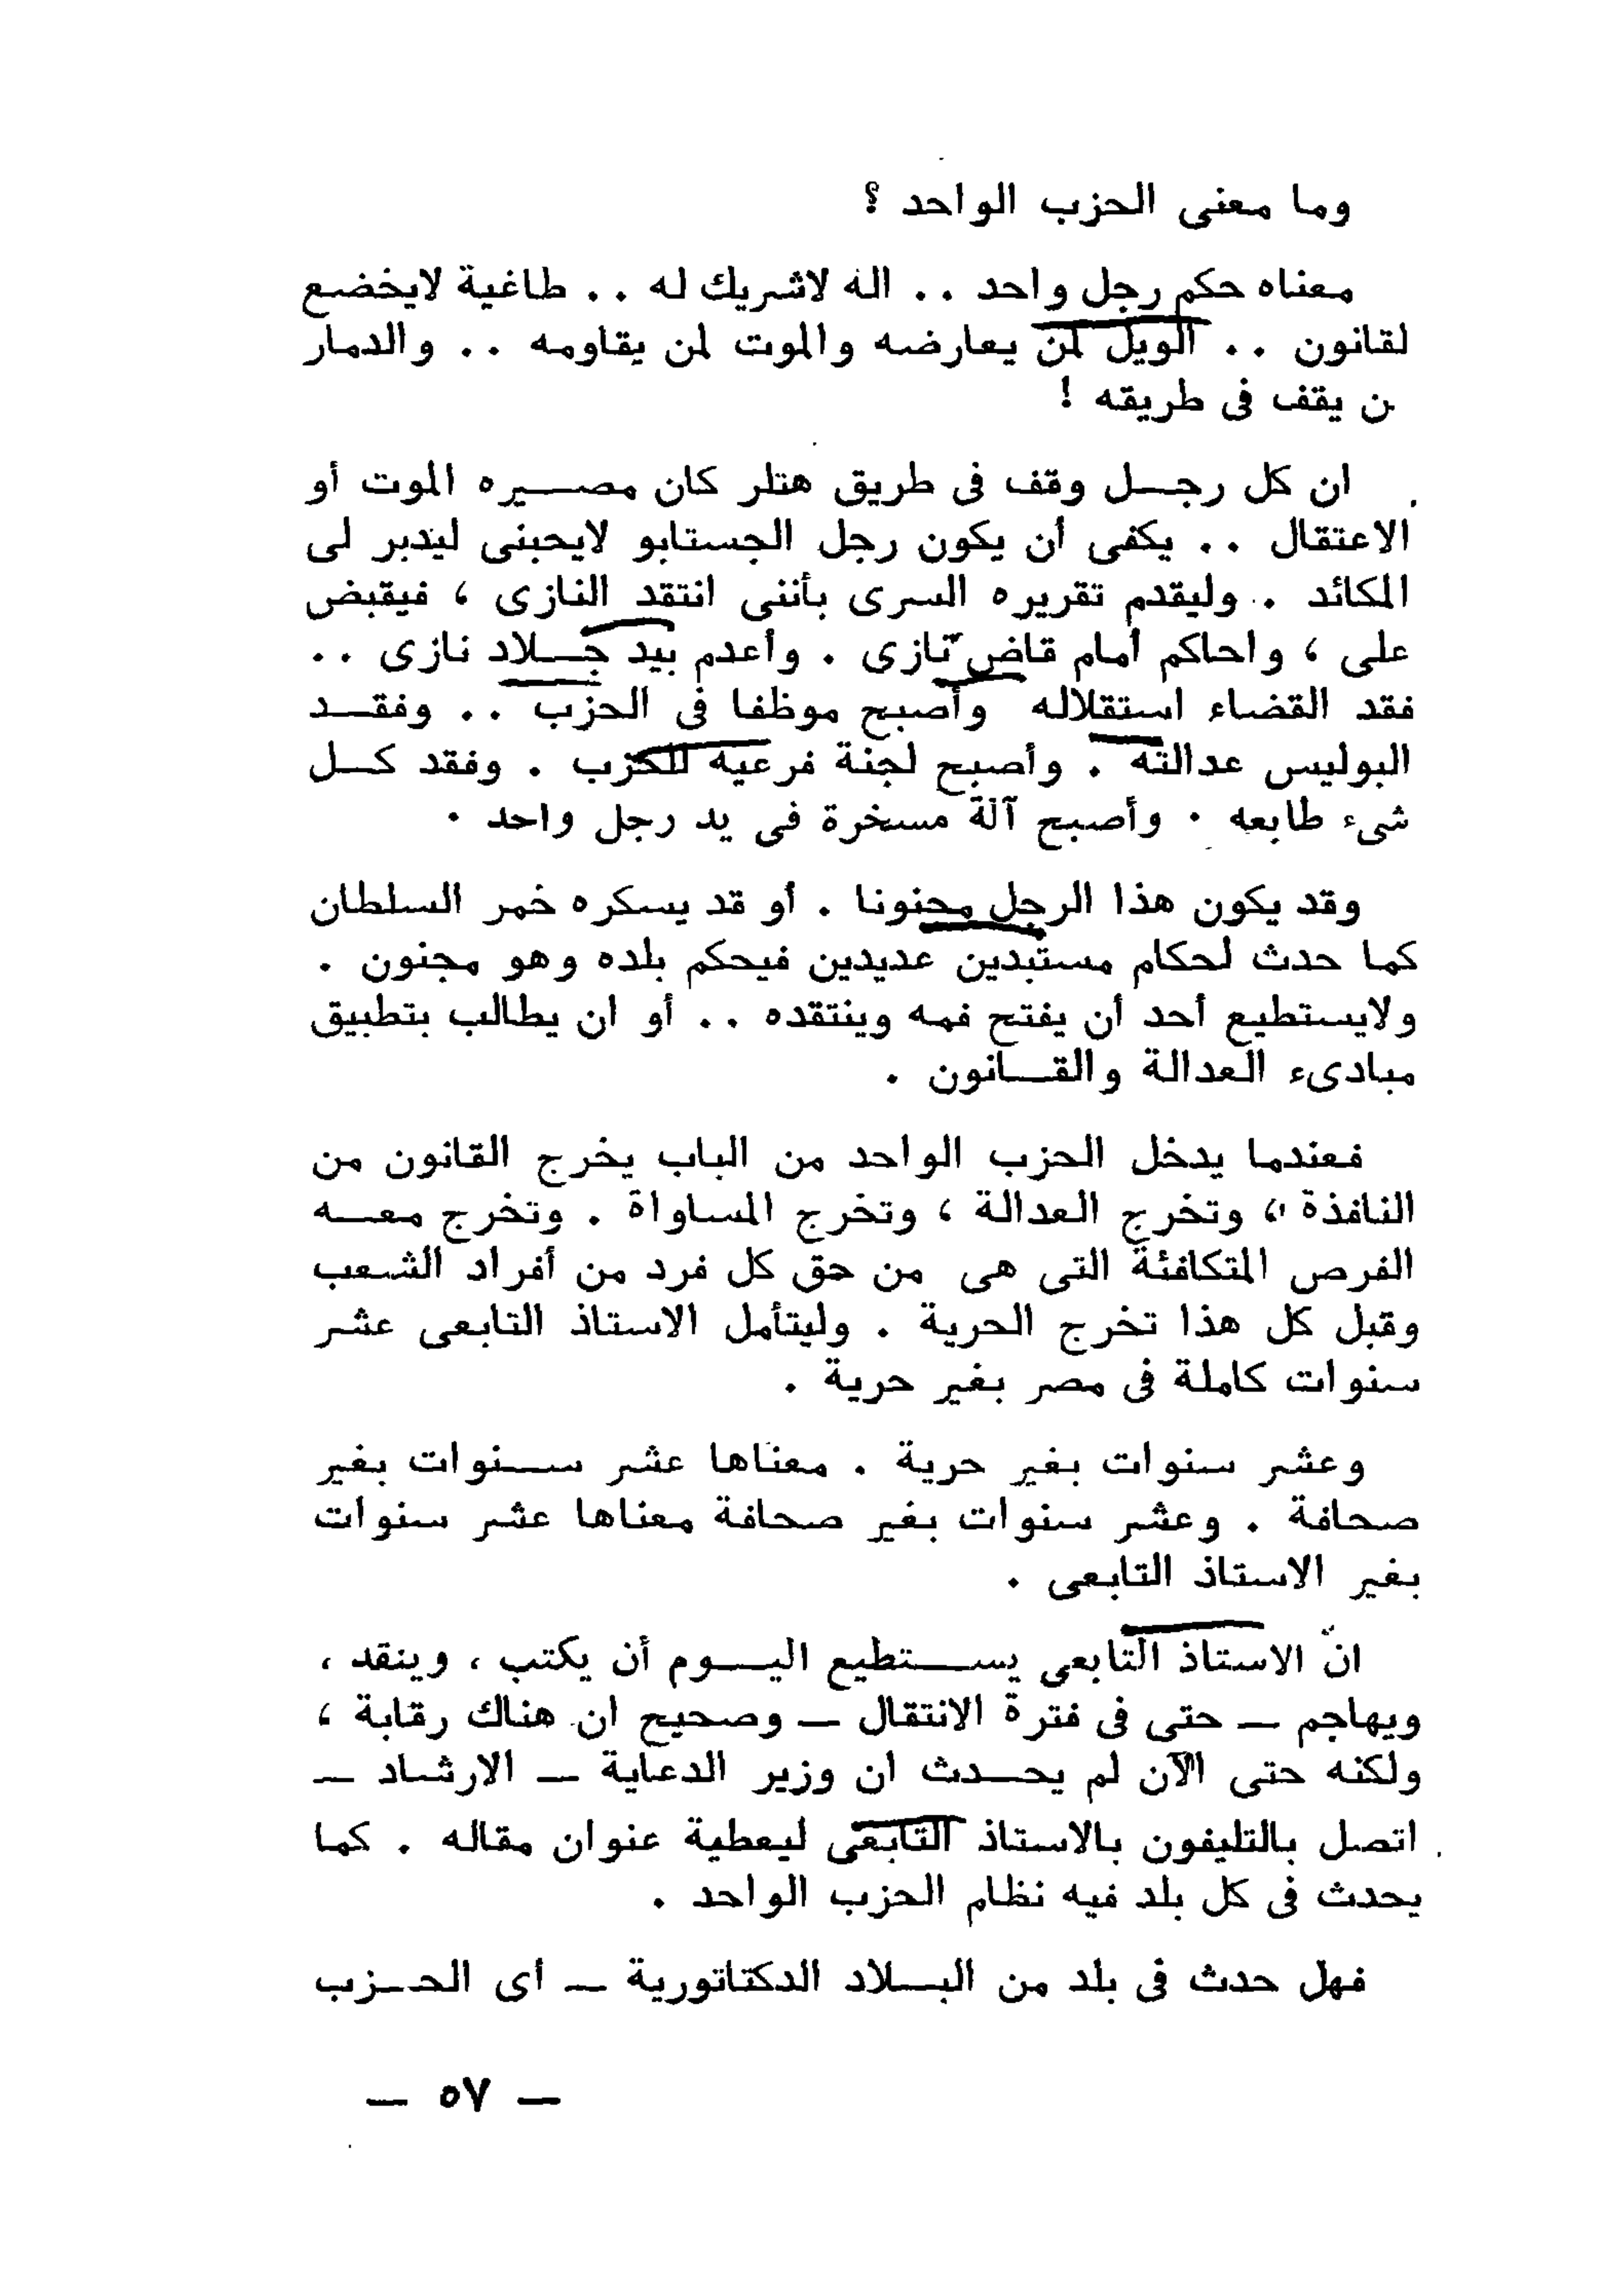 وما معنى الحزب الواحد ؟
معناه حكم رجل واحد . . اله لاشريك له . . طاغية لايخضع
لقانون . . الويل لمن يعارضه والموت لمن يقاومه . . والدمار
ن يقف فى طريقه !
ان كل رجـــل وقف فى طريق هتلر كان مصـــيره الموت أو
الاعتقال . . يكفى أن يكون رجل الجستابو لايحبنى ليدبر لى
المكائد . وليقدم تقريره السرى بأننى انتقد النازى ، فيقبض
على ، واحاكم أمام قاض نازى . وأعدم بيد جـــلاد نازى . .
فقد القضاء استقلاله وأصبح موظفا فى الحزب . . وفقـــد
البوليس عدالته . وأصبح لجنة فرعية للحزب . وفقد كـــل
شىء طابعه . وأصبح آلة مسخرة فى يد رجل واحد .
وقد يكون هذا الرجل مجنونا . أو قد يسكره خمر السلطان
كما حدث لحكام مستبدين عديدين فيحكم بلده وهو مجنون .
ولايستطيع أحد أن يفتح فمه وينتقده . . أو ان يطالب بتطبيق
مبادىء العدالة والقـــانون .
فعندما يدخل الحزب الواحد من الباب يخرج القانون من
النافذة ، وتخرج العدالة ، وتخرج المساواة . وتخرج معـــه
الفرص المتكافئة التى هى من حق كل فرد من أفراد الشعب
وقبل كل هذا تخرج الحرية . وليتأمل الاستاذ التابعى عشر
سنوات كاملة فى مصر بغير حرية .
وعشر سنوات بغير حرية . معناها عشر ســـنوات بغير
صحافة . وعشر سنوات بغير صحافة معناها عشر سنوات
بغير الاستاذ التابعى .
ان الاستاذ التابعى يســـتطيع اليـــوم أن يكتب ، وينقد ،
ويهاجم — حتى فى فترة الانتقال — وصحيح ان هناك رقابة ،
ولكنه حتى الآن لم يحـــدث ان وزير الدعاية — الارشاد —
اتصل بالتليفون بالاستاذ التابعى ليعطية عنوان مقاله . كما
يحدث فى كل بلد فيه نظام الحزب الواحد .
فهل حدث فى بلد من البـــلاد الدكتاتورية — أى الحـــزب
— ٥٧ —